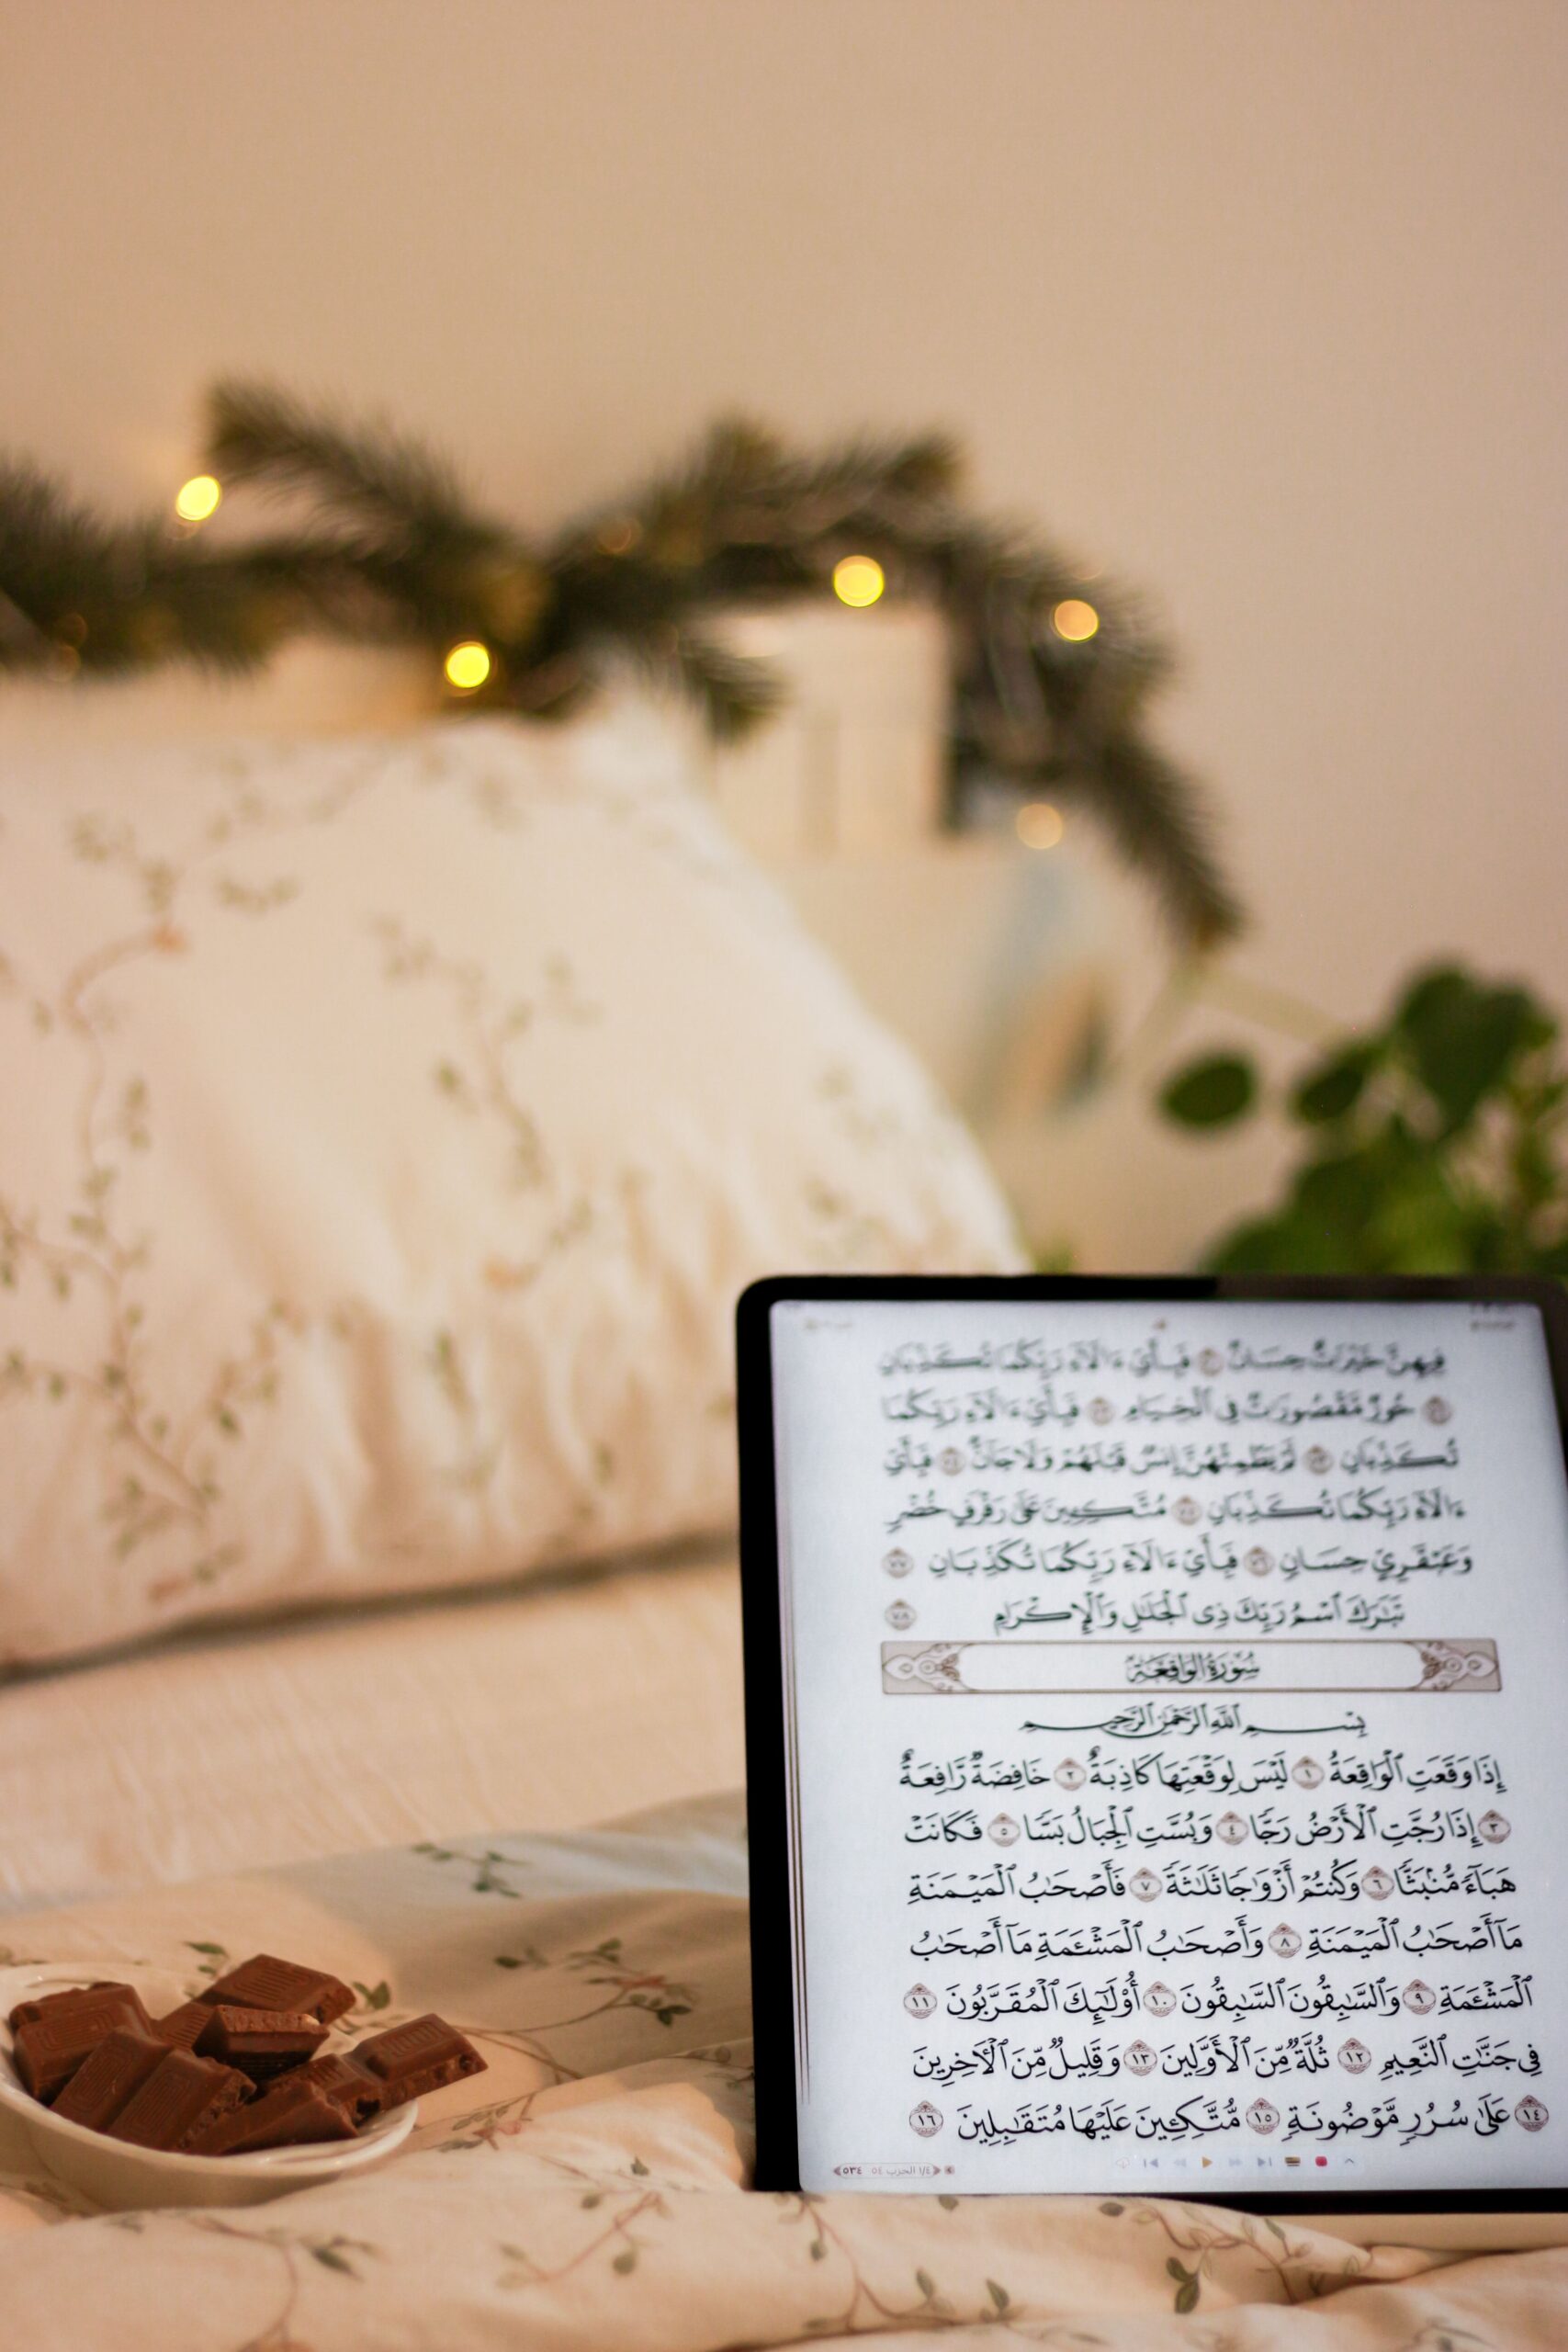 فِيهِنَّ خَيْرَٰتٌ حِسَانٌ ٧٠ فَبِأَيِّ ءَالَآءِ رَبِّكُمَا تُكَذِّبَانِ
٧١ حُورٌ مَّقْصُورَٰتٌ فِي ٱلْخِيَامِ ٧٢ فَبِأَيِّ ءَالَآءِ رَبِّكُمَا
تُكَذِّبَانِ ٧٣ لَمْ يَطْمِثْهُنَّ إِنسٌ قَبْلَهُمْ وَلَا جَآنٌّ ٧٤ فَبِأَيِّ
ءَالَآءِ رَبِّكُمَا تُكَذِّبَانِ ٧٥ مُتَّكِـِٔينَ عَلَىٰ رَفْرَفٍ خُضْرٍ
وَعَبْقَرِيٍّ حِسَانٍ ٧٦ فَبِأَيِّ ءَالَآءِ رَبِّكُمَا تُكَذِّبَانِ ٧٧
تَبَٰرَكَ ٱسْمُ رَبِّكَ ذِي ٱلْجَلَٰلِ وَٱلْإِكْرَامِ ٧٨
سُورَةُ الوَاقِعَةِ
بِسْمِ ٱللَّهِ ٱلرَّحْمَٰنِ ٱلرَّحِيمِ
إِذَا وَقَعَتِ ٱلْوَاقِعَةُ ١ لَيْسَ لِوَقْعَتِهَا كَاذِبَةٌ ٢ خَافِضَةٌ رَّافِعَةٌ
٣ إِذَا رُجَّتِ ٱلْأَرْضُ رَجًّا ٤ وَبُسَّتِ ٱلْجِبَالُ بَسًّا ٥ فَكَانَتْ
هَبَآءً مُّنۢبَثًّا ٦ وَكُنتُمْ أَزْوَٰجًا ثَلَٰثَةً ٧ فَأَصْحَٰبُ ٱلْمَيْمَنَةِ
مَآ أَصْحَٰبُ ٱلْمَيْمَنَةِ ٨ وَأَصْحَٰبُ ٱلْمَشْـَٔمَةِ مَآ أَصْحَٰبُ
ٱلْمَشْـَٔمَةِ ٩ وَٱلسَّٰبِقُونَ ٱلسَّٰبِقُونَ ١٠ أُو۟لَٰٓئِكَ ٱلْمُقَرَّبُونَ ١١
فِي جَنَّٰتِ ٱلنَّعِيمِ ١٢ ثُلَّةٌ مِّنَ ٱلْأَوَّلِينَ ١٣ وَقَلِيلٌ مِّنَ ٱلْءَاخِرِينَ
١٤ عَلَىٰ سُرُرٍ مَّوْضُونَةٍ ١٥ مُّتَّكِـِٔينَ عَلَيْهَا مُتَقَٰبِلِينَ ١٦
١/٤ الحزب ٥٤ ٥٣٤